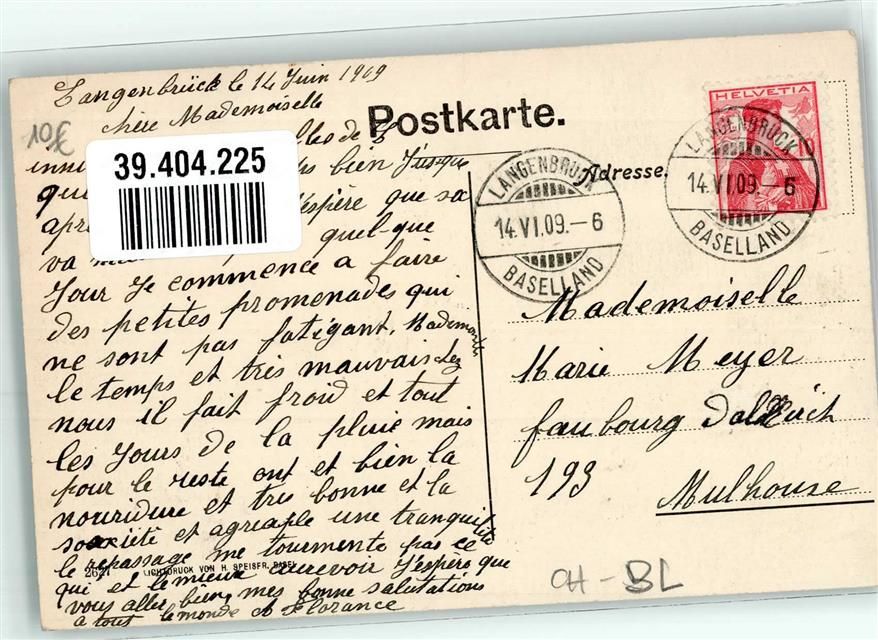 Langenbrück le 14 Juin 1909
chère Mademoiselle
10€
Postkarte.
39.404.225
bien J'usque
qu
J'espère que sa
apr
quel-que
va
Jour Je commence a faire
des petites promenades qui
ne sont pas fatigant, Mademoiselle
le temps et très mauvais chez
nous il fait froid et tout
les Jours de la pluie mais
pour le reste ont et bien la
nouridure et tres bonne et la
sociéte et agreaple une tranquilité
le repassage me tourmente pas ce
qui et le mieux aurevoir J'espère que
vous aller bien, mes bonne salutations
a tous le monde et Florance
2627 LICHTDRUCK VON H. SPEISER, BASEL
Adresse.
HELVETIA
10
LANGENBRUCK
14.VI.09.–6
BASELLAND
LANGENBRUCK
14.VI.09.–6
BASELLAND
Mademoiselle
Marie Meyer
faubourg
193
Mulhouse
CH-BL